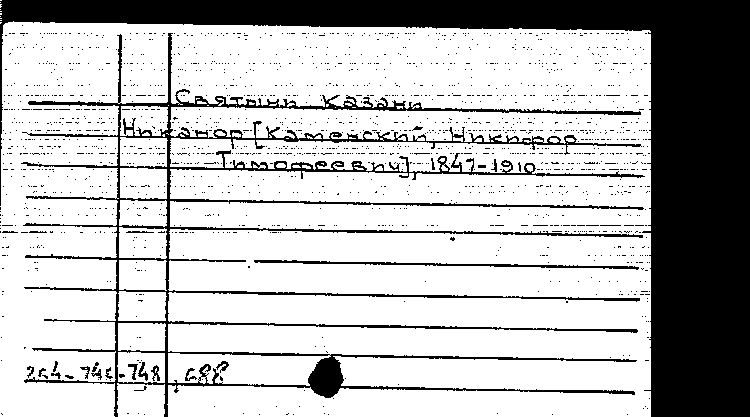 Святыни Казани
Никанор [Каменский, Никифор
Тимофеевич], 1847-1910